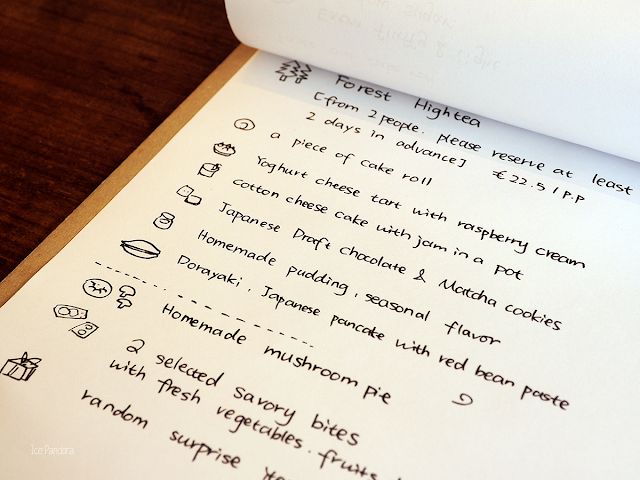 Forest Hightea
[from 2 people. please reserve at least
2 days in advance] € 22.5 / P.P
a piece of cake roll
Yoghurt cheese tart with raspberry cream
cotton cheese cake with jam in a pot
Japanese Draft chocolate & Matcha cookies
Homemade pudding, seasonal flavor
Dorayaki, Japanese pancake with red bean paste
Homemade mushroom pie
2 selected savory bites
with fresh vegetables. fruits
random surprise
Ice Pandora